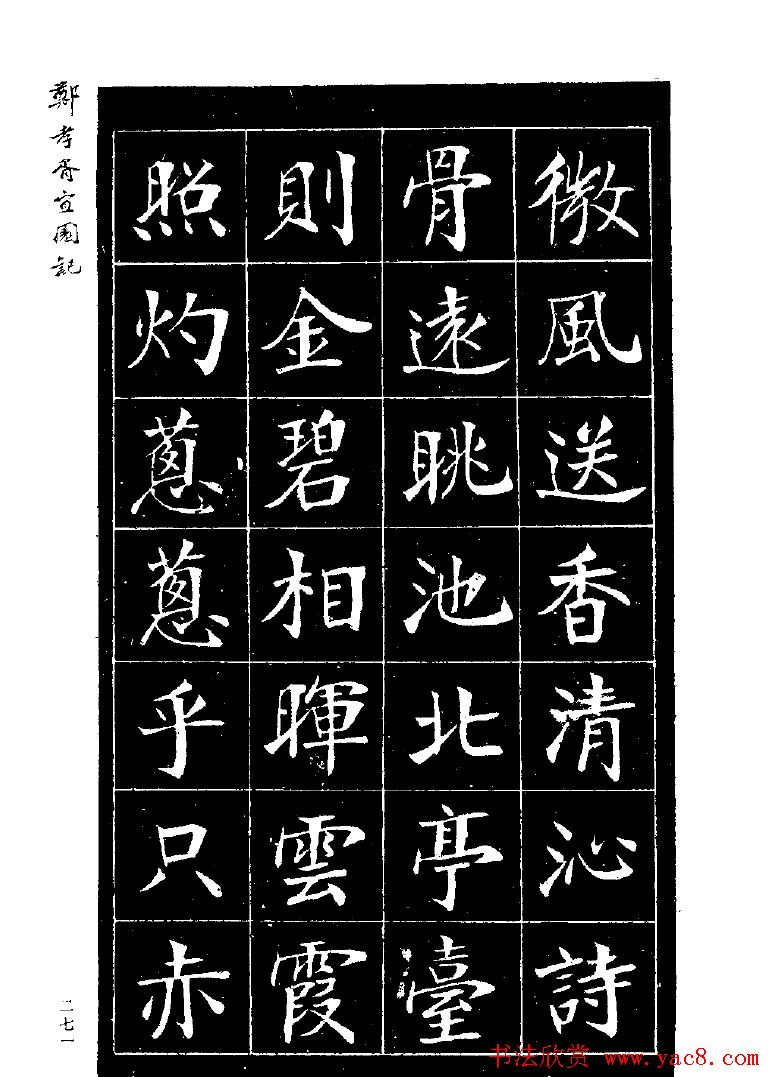 微風送香清沁詩
骨遠眺池北亭臺
則金碧相暉雲霞
照灼蔥蔥乎只赤
鄭孝胥宣園記
二七一
书法欣赏 www.yac8.com